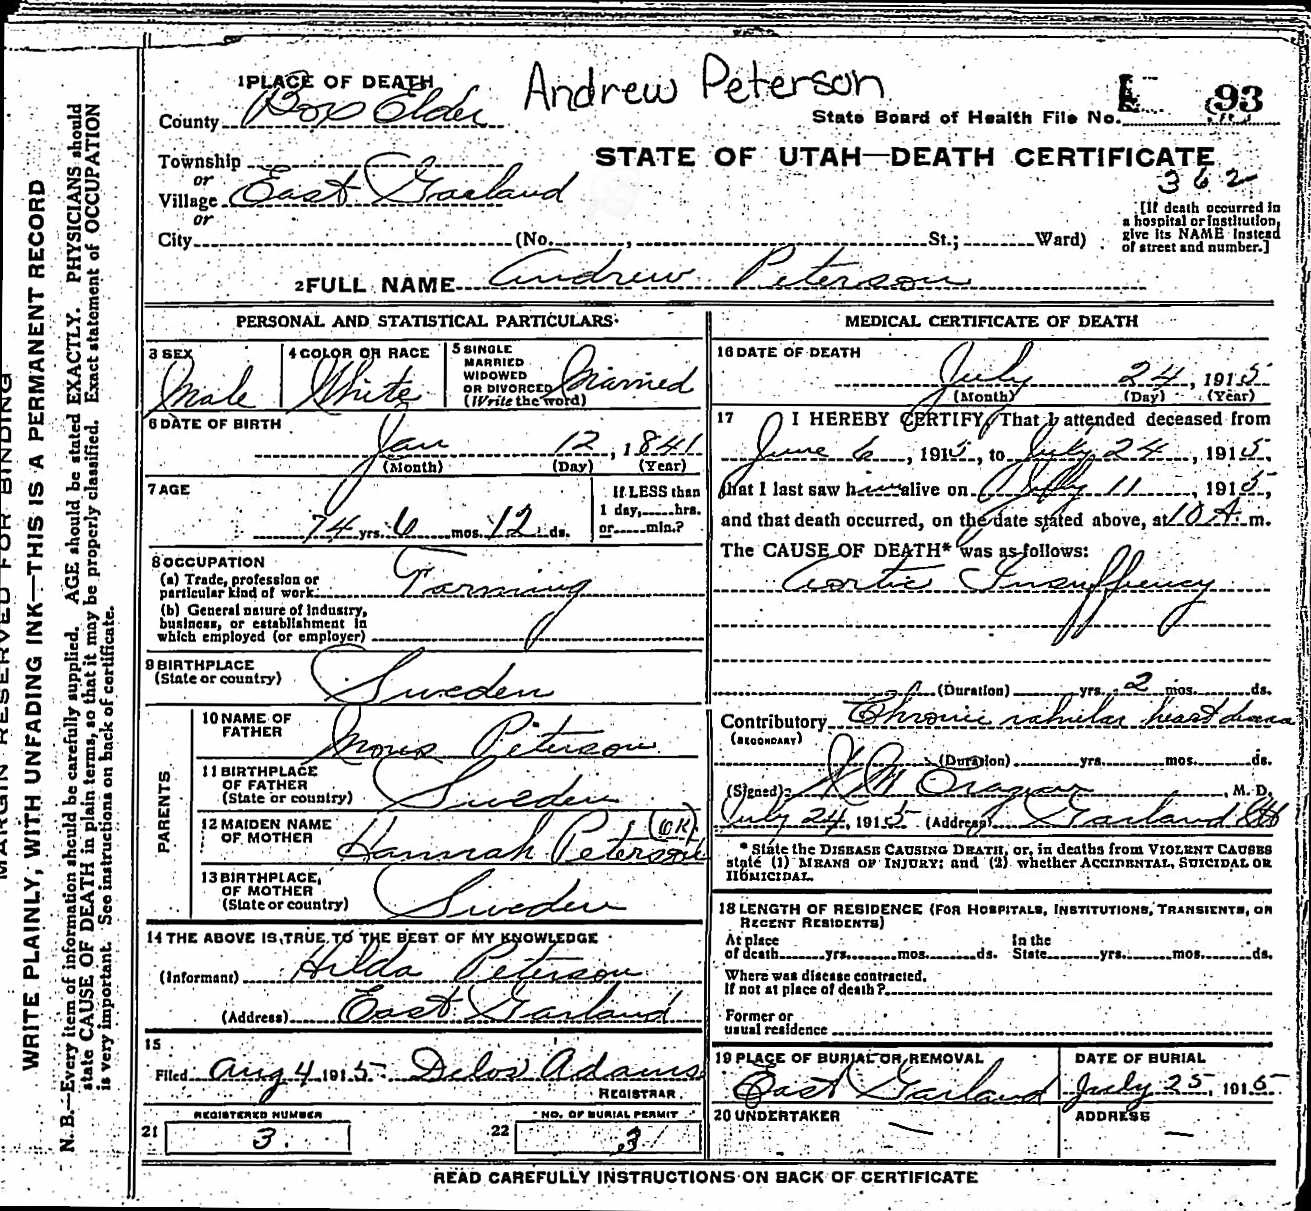 MARGIN RESERVED FOR BINDING
WRITE PLAINLY, WITH UNFADING INK—THIS IS A PERMANENT RECORD
N. B.—Every item of information should be carefully supplied. AGE should be stated EXACTLY. PHYSICIANS should
state CAUSE OF DEATH in plain terms, so that it may be properly classified. Exact statement of OCCUPATION
is very important. See instructions on back of certificate.
1 PLACE OF DEATH
Andrew Peterson
County Box Elder
State Board of Health File No. 93
STATE OF UTAH—DEATH CERTIFICATE
362
Township
or
Village East Garland
or
City (No. , St.; Ward)
[If death occurred in
a hospital or institution,
give its NAME instead
of street and number.]
2 FULL NAME Andrew Peterson
PERSONAL AND STATISTICAL PARTICULARS
3 SEX
Male
4 COLOR OR RACE
White
5 SINGLE
MARRIED
WIDOWED
OR DIVORCED
(Write the word)
Married
6 DATE OF BIRTH
Jan 12, 1841
(Month) (Day) (Year)
7 AGE
74 yrs. 6 mos. 12 ds.
If LESS than
1 day, hrs.
or min.?
8 OCCUPATION
(a) Trade, profession or
particular kind of work Farming
(b) General nature of industry,
business, or establishment in
which employed (or employer)
9 BIRTHPLACE
(State or country) Sweden
PARENTS
10 NAME OF
FATHER Peterson
11 BIRTHPLACE
OF FATHER
(State or country) Sweden
12 MAIDEN NAME
OF MOTHER Hannah Peterson (OK)
13 BIRTHPLACE,
OF MOTHER
(State or country) Sweden
14 THE ABOVE IS TRUE TO THE BEST OF MY KNOWLEDGE
(Informant) Hilda Peterson
(Address) East Garland
15
Filed Aug 4 1915 Delos Adams
REGISTRAR
REGISTERED NUMBER
21 3.
NO. OF BURIAL PERMIT
22 3
MEDICAL CERTIFICATE OF DEATH
16 DATE OF DEATH
July 24, 1915
(Month) (Day) (Year)
17 I HEREBY CERTIFY, That I attended deceased from
June 6, 1915, to July 24, 1915,
that I last saw him alive on July 11, 1915,
and that death occurred, on the date stated above, at 10 A. m.
The CAUSE OF DEATH* was as follows:
Aortic Insuffiency
(Duration) yrs. 2 mos. ds.
Contributory Chronic valvular heart
(SECONDARY)
(Duration) yrs. mos. ds.
(Signed) , M. D.
July 24, 1915 (Address) Garland
* State the DISEASE CAUSING DEATH, or, in deaths from VIOLENT CAUSES
state (1) MEANS OF INJURY; and (2) whether ACCIDENTAL, SUICIDAL OR
HOMICIDAL.
18 LENGTH OF RESIDENCE (FOR HOSPITALS, INSTITUTIONS, TRANSIENTS, OR
RECENT RESIDENTS)
At place
of death yrs. mos. ds.
In the
State yrs. mos. ds.
Where was disease contracted.
If not at place of death?
Former or
usual residence
19 PLACE OF BURIAL OR REMOVAL
East Garland
DATE OF BURIAL
July 25, 1915
20 UNDERTAKER
—
ADDRESS
—
READ CAREFULLY INSTRUCTIONS ON BACK OF CERTIFICATE